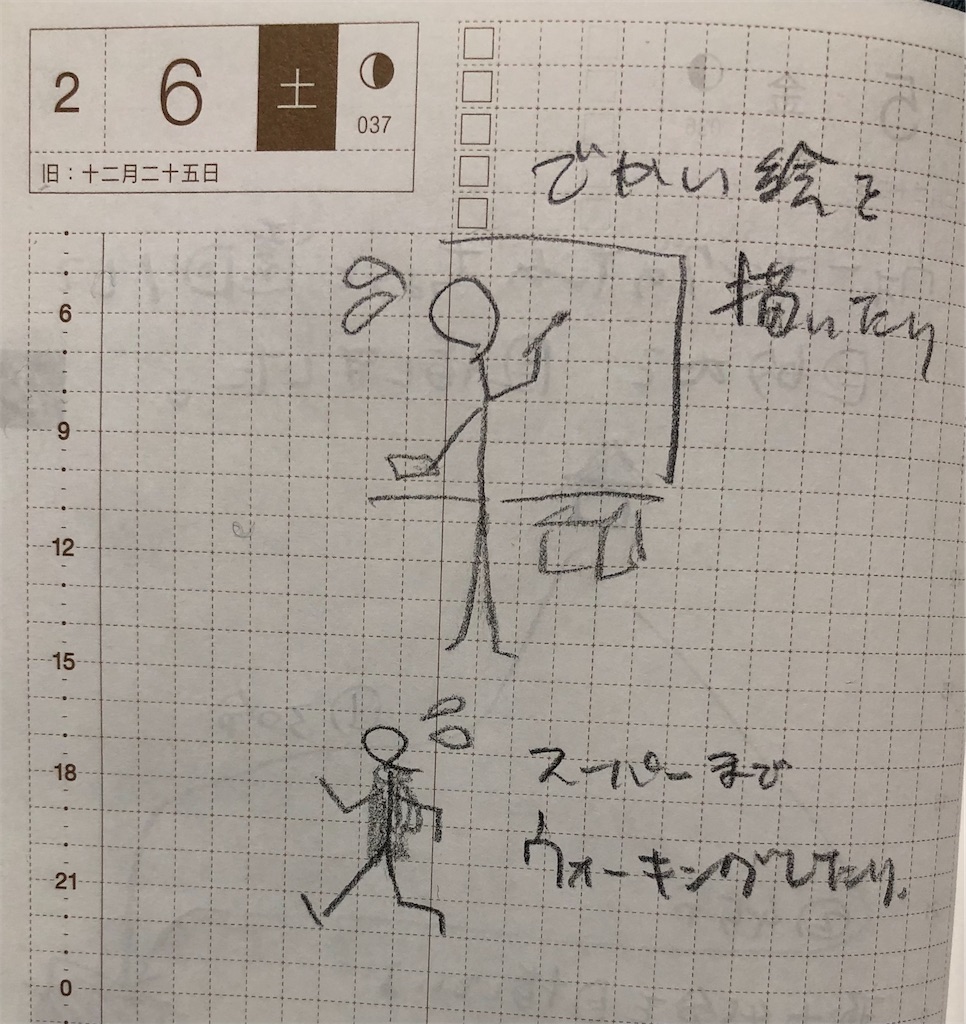 2 6 土
037
旧：十二月二十五日
でかい絵を
描いたり
6
9
12
15
スーパーまで
18
ウォーキングしたり.
21
0